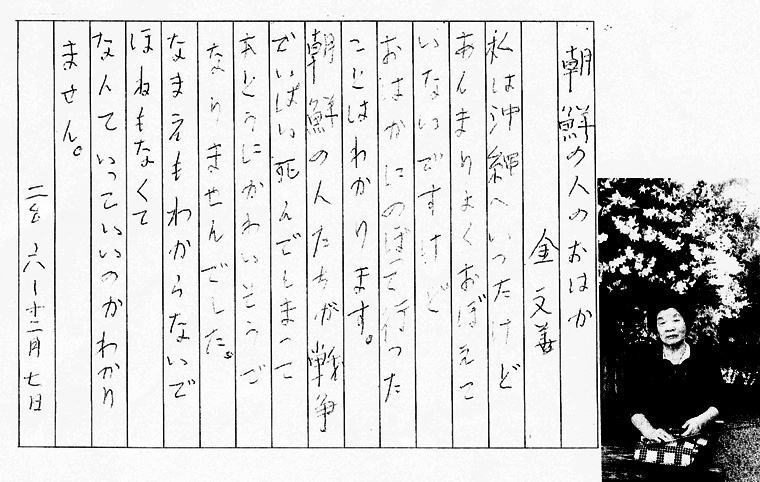 朝鮮の人のおはか
金文善
私は沖縄へいったけど
あんまりよくおぼえて
いないですけど
おはかにのぼって行った
ことはわかります。
朝鮮の人たちが戦争
でいぱい死んでしまって
本とうにかわいそうで
なりませんでした。
なまえもわからないで
ほねもなくて
なんていっていいのかわかり
ません。
十二月七日